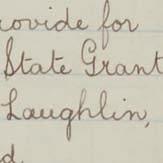 rovide for
State Grant
Laughlin,
d